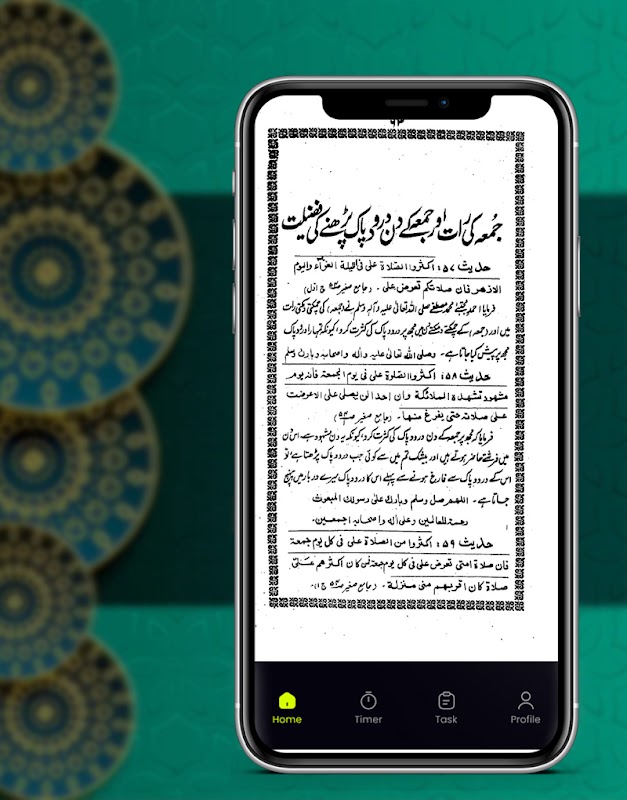 ۶۳
جمعہ کی رات اور جمعے کے دن درود پاک پڑھنے کی فضیلت
حدیث ۵۷: اکثروا الصلاة علی فی اللیلة الغراء والیوم
الازھر فان صلاتکم تعرض علی۔ (جامع صغیر ص۵۴ ج اول)
فرمایا احمد مجتبےٰ محمد مصطفےٰ صلی اللہ تعالیٰ علیہ وآلہ وسلم نے (جمعہ) کی چمکتی دمکتی رات
میں اور (جمعہ) کے چمکتے دمکتے دن میں مجھ پر درود پاک کی کثرت کرو، کیونکہ تمہارا درود پاک
مجھ پر پیش کیا جاتا ہے۔ وصلی اللہ تعالیٰ علیہ والہ واصحابہ وبارک وسلم
حدیث ۵۸: اکثروا الصلوة علی فی یوم الجمعة فانه یوم
مشھود تشھدہ الملائکة وان احدا لن یصلی علی الا عرضت
علی صلاته حتی یفرغ منھا۔ (جامع صغیر ص۵۴)
فرمایا کہ مجھ پر جمعہ کے دن درود پاک کی کثرت کرو، کیونکہ یہ دن مشہود ہے، اس دن
میں فرشتے حاضر ہوتے ہیں اور بیشک تم میں سے کوئی جب درود پاک پڑھتا ہے تو
اس کے درود پاک سے فارغ ہونے سے پہلے اس کا درود پاک میرے دربار میں پہنچ
جاتا ہے۔ اللھم صل وسلم وبارک علی رسولک المبعوث
رحمة للعالمین وعلی اله واصحابہ اجمعین۔
حدیث ۵۹: اکثروا من الصلاة علی فی کل یوم جمعة
فان صلاة امتی تعرض علی فی کل یوم جمعة فمن کان اکثرھم علی
صلاة کان اقربھم منی منزلة۔ (جامع صغیر ص۵۴ ج۱)
Home Timer Task Profile